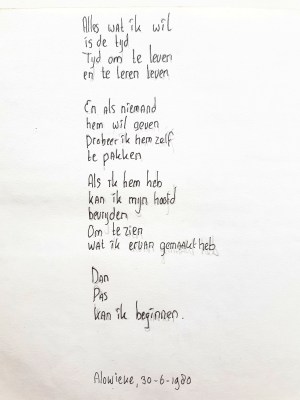 Alles wat ik wil
is de tyd
Tyd om te leven
en te leren leven
En als niemand
hem wil geven
Probeer ik hem zelf
te pakken
Als ik hem heb
kan ik myn hoofd
bevryden
Om te zien
wat ik ervan gemaakt heb
Dan
Pas
kan ik beginnen.
Alowieke, 30-6-1980